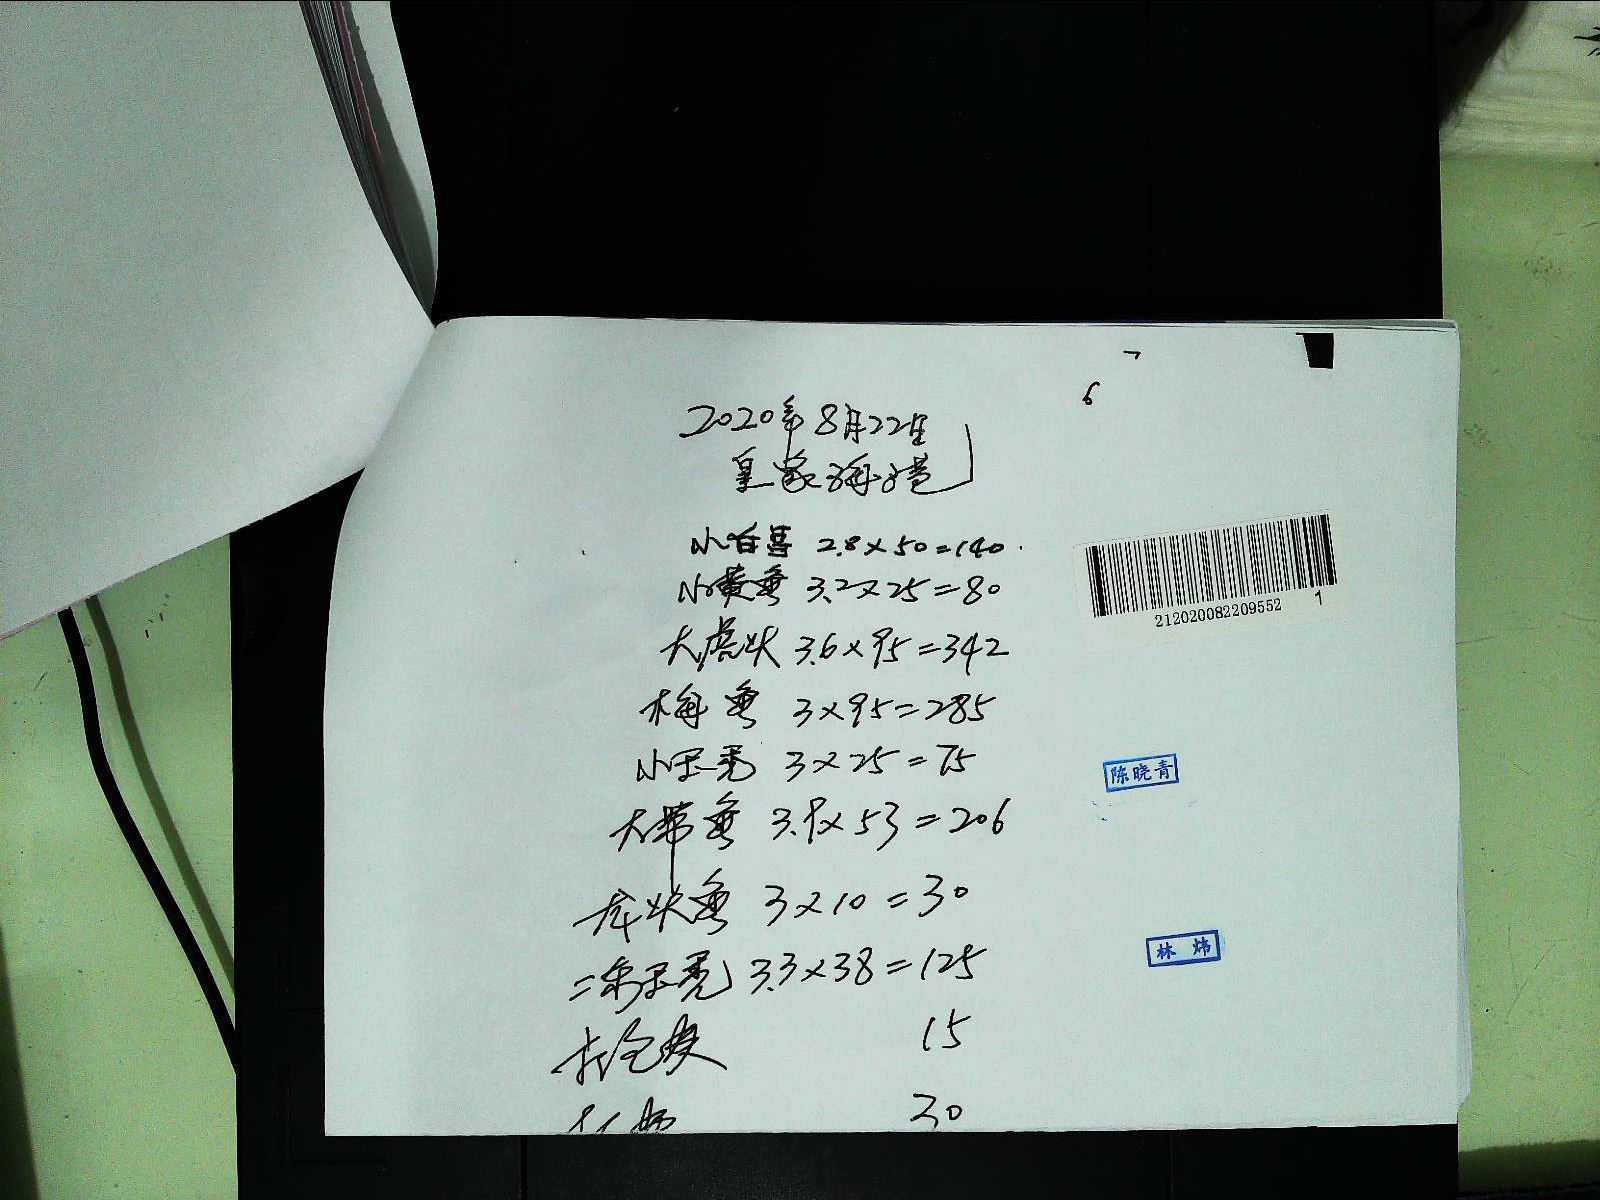 7
6
2020年8月22日
皇家海港
小白鲳 2.8×50=140
小黄鱼 3.2×25=80
大虎头 3.6×95=342
梅鱼 3×95=285
小玉秃 3×25=75
大带鱼 3.9×53=206
龙头鱼 3×10=30
二条玉秃 3.3×38=125
15
20
212020082209552 1
陈晓青
林炜